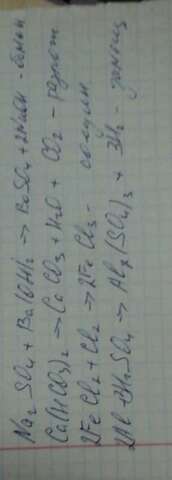 Na2SO4 + Ba(OH)2 → BaSO4 + 2NaOH - обмен
Ca(HCO3)2 → CaCO3 + H2O + CO2 - разлож
2FeCl2 + Cl2 → 2FeCl3 - соедин
2Al + 3H2SO4 → Al2(SO4)3 + 3H2 - замещ